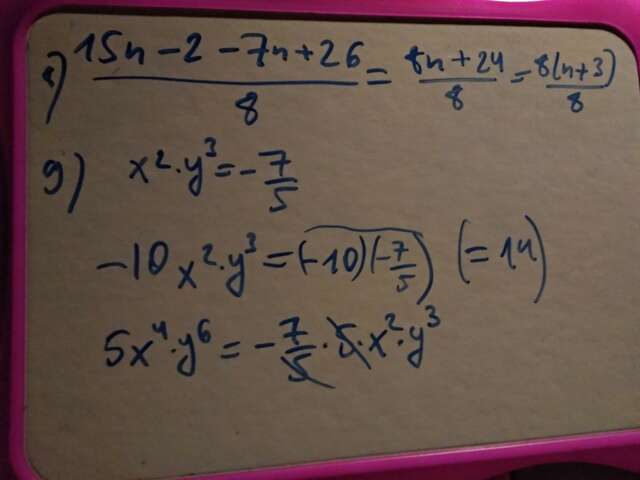 1) (15n-2-7n+26)/8 = (8n+24)/8 = 8(n+3)/8
9) x²·y³ = -7/5
-10x²·y³ = (-10)(-7/5) (=14)
5x⁴·y⁶ = -7/5·5·x²·y³